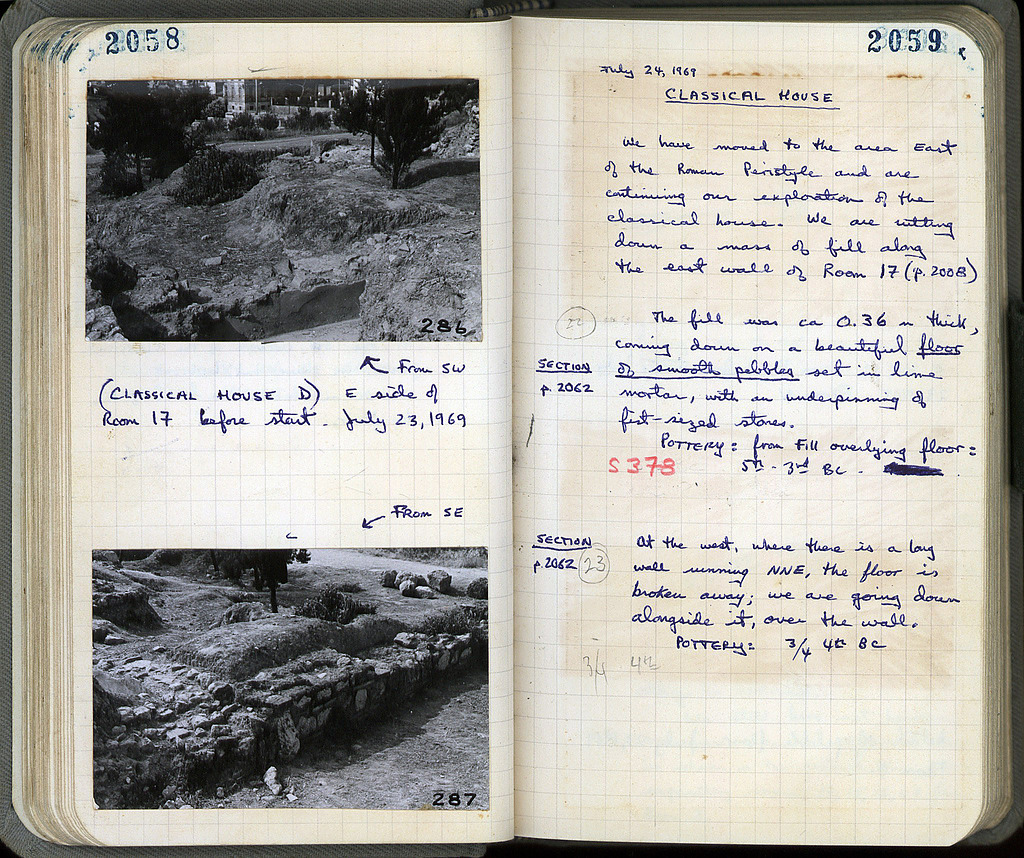 2058
286
From SW
(CLASSICAL HOUSE D) E side of
Room 17 before start. July 23, 1969
From SE
287
2059
July 24, 1969
CLASSICAL HOUSE
We have moved to the area East
of the Roman Peristyle and are
continuing our exploration of the
classical house. We are cutting
down a mass of fill along
the east wall of Room 17 (p. 2008)
22
The fill was ca 0.36 m thick,
coming down on a beautiful floor
SECTION
p. 2062
of smooth pebbles set in lime
mortar, with an underpinning of
fist-sized stones.
POTTERY: from Fill overlying floor:
S 378
5th - 3rd BC.
SECTION
p. 2062
23
At the west, where there is a long
wall running NNE, the floor is
broken away; we are going down
alongside it, over the wall.
POTTERY: 3/4 4th BC
3/4 4th